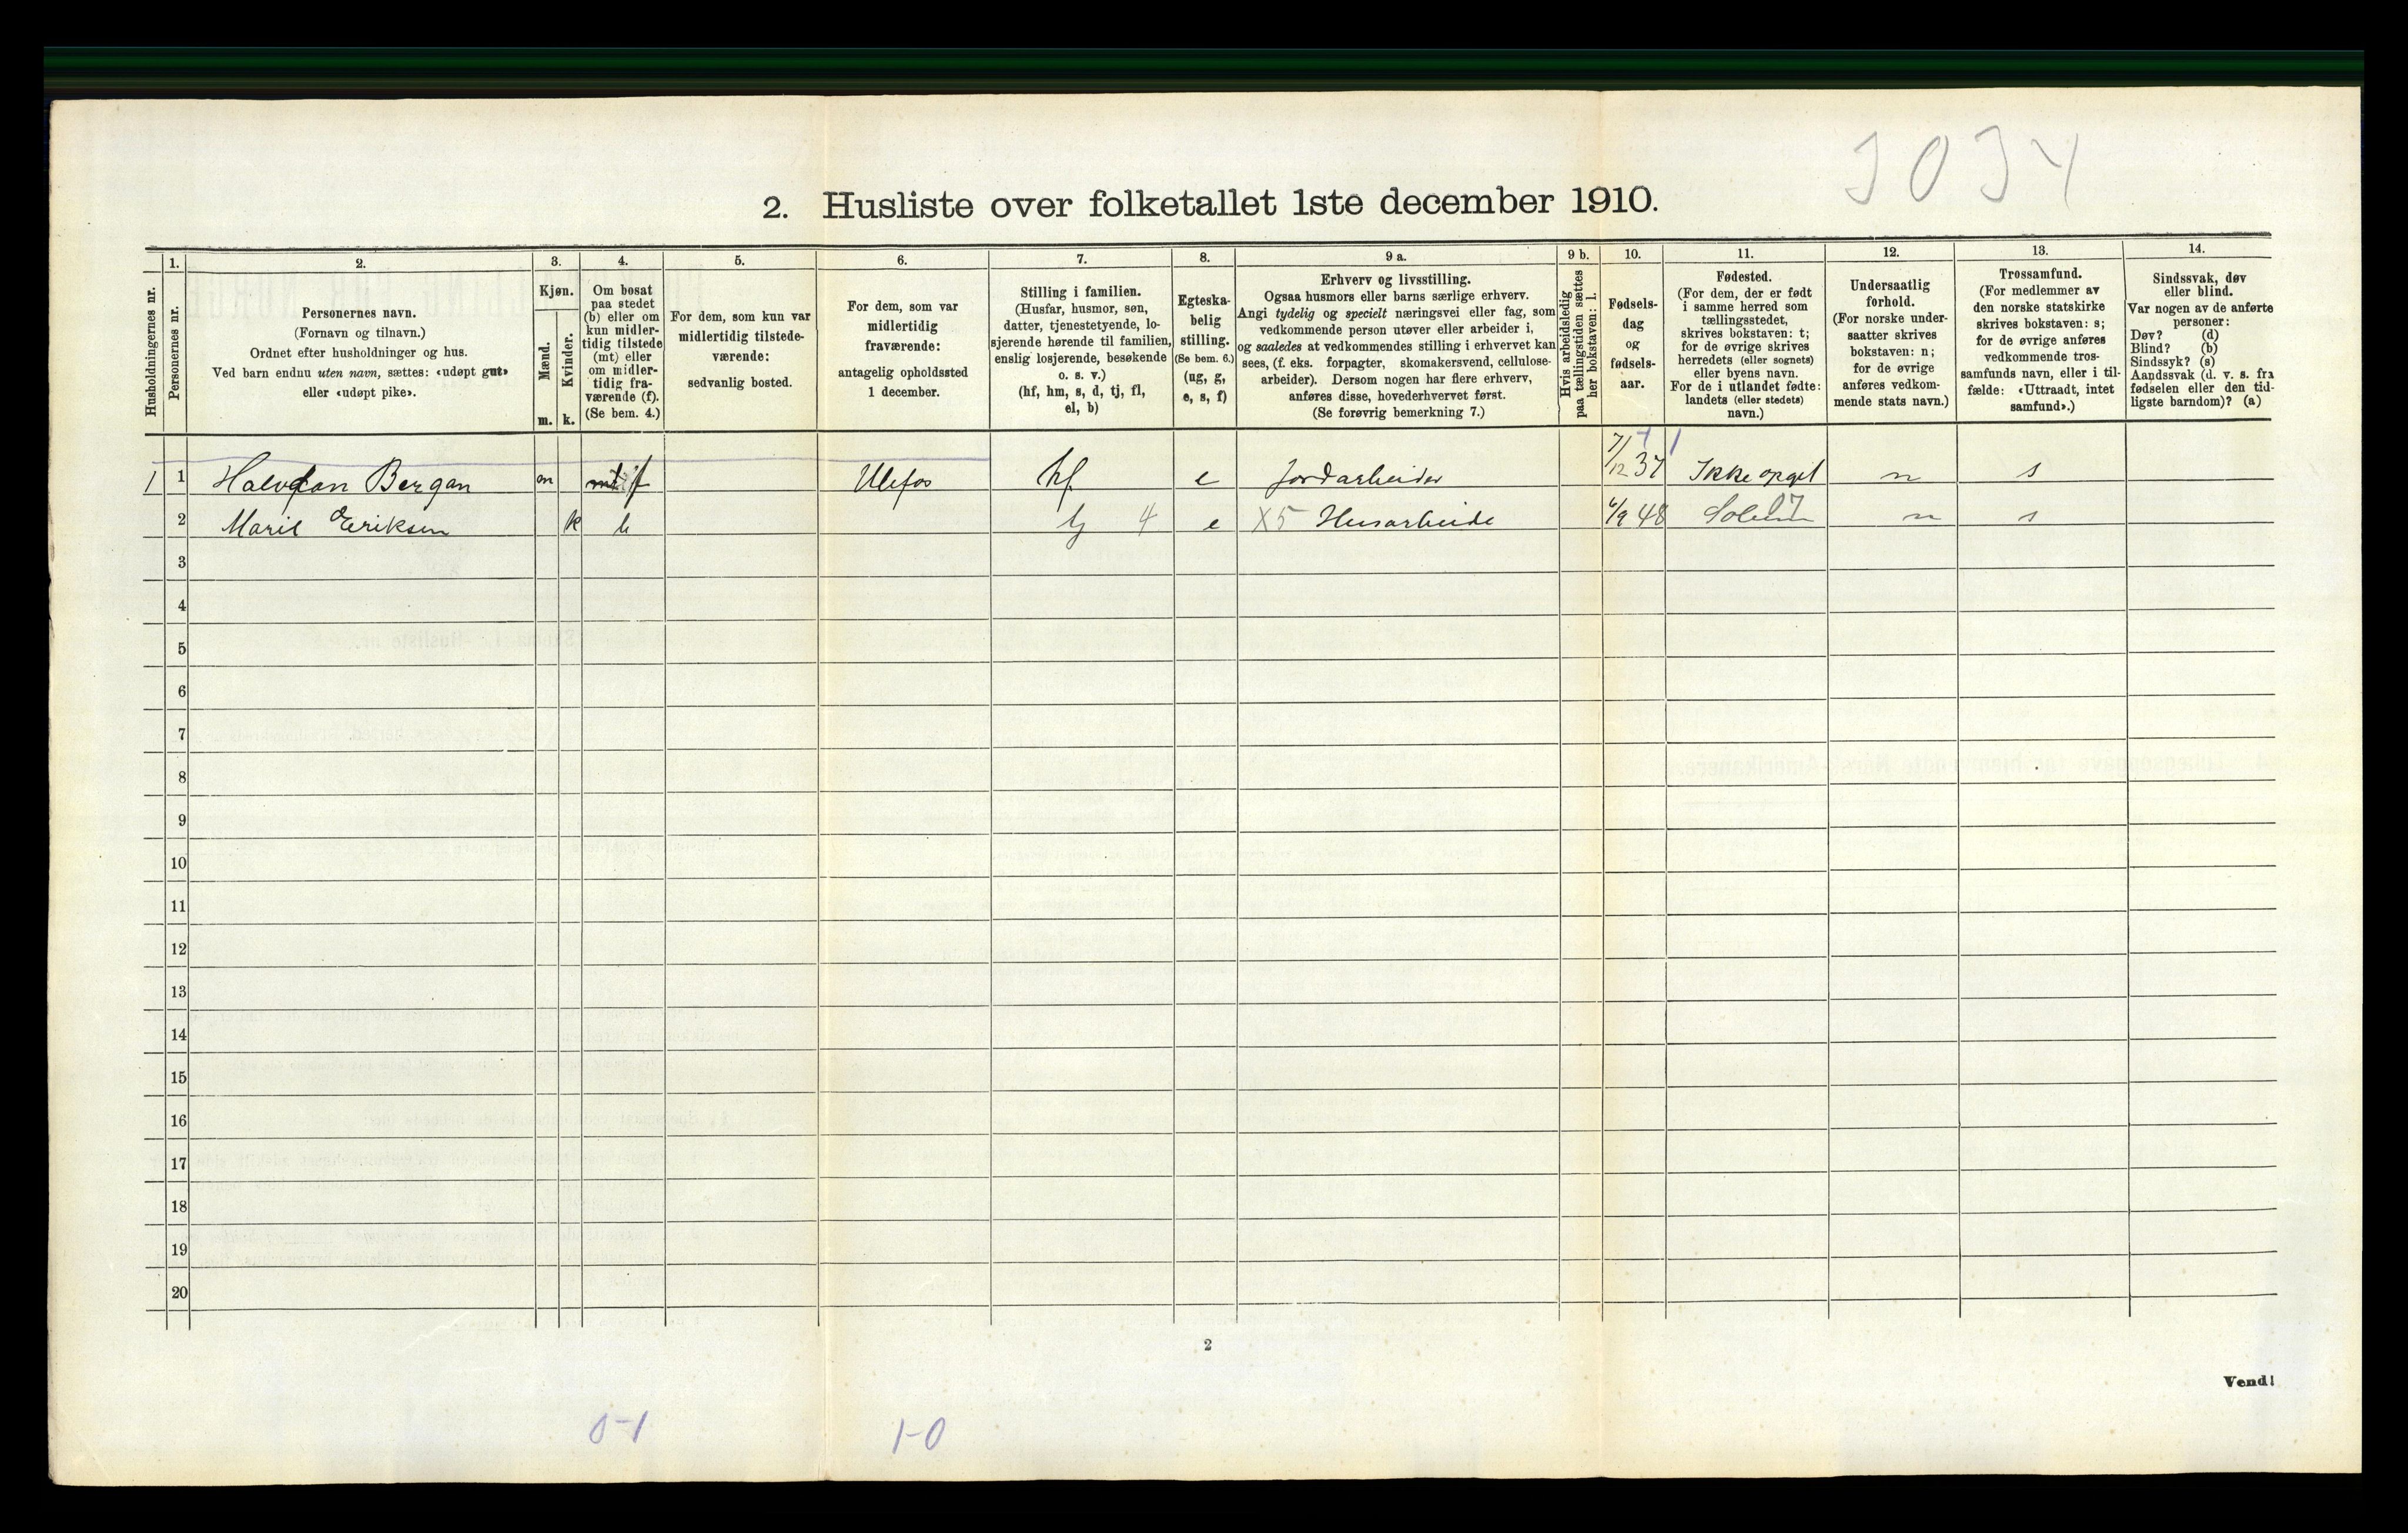 3034
2. Husliste over folketallet 1ste december 1910.
Husholdningernes nr.
1.
Personernes nr.
2.
Personernes navn.
(Fornavn og tilnavn.)
Ordnet efter husholdninger og hus.
Ved barn endnu uten navn, sættes: «udøpt gut»
eller «udøpt pike».
3.
Kjøn.
Mænd.
Kvinder.
m. k.
4.
Om bosat
paa stedet
(b) eller om
kun midler-
tidig tilstede
(mt) eller
om midler-
tidig fra-
værende (f).
(Se bem. 4.)
5.
For dem, som kun var
midlertidig tilstede-
værende:
sedvanlig bosted.
6.
For dem, som var
midlertidig
fraværende:
antagelig opholdssted
1 december.
7.
Stilling i familien.
(Husfar, husmor, søn,
datter, tjenestetyende, lo-
sjerende hørende til familien,
enslig losjerende, besøkende
o. s. v.)
(hf, hm, s, d, tj, fl,
el, b)
8.
Egteska-
belig
stilling.
(Se bem. 6.)
(ug, g,
e, s, f)
9 a.
Erhverv og livsstilling.
Ogsaa husmors eller barns særlige erhverv.
Angi tydelig og specielt næringsvei eller fag, som
vedkommende person utøver eller arbeider i,
og saaledes at vedkommendes stilling i erhvervet kan
sees, (f. eks. forpagter, skomakersvend, cellulose-
arbeider). Dersom nogen har flere erhverv,
anføres disse, hovederhvervet først.
(Se forøvrig bemerkning 7.)
9 b.
Hvis arbeidsledig
paa tællingstiden sættes
her bokstaven: l.
10.
Fødsels-
dag
og
fødsels-
aar.
11.
Fødested.
(For dem, der er født
i samme herred som
tællingsstedet,
skrives bokstaven: t;
for de øvrige skrives
herredets (eller sognets)
eller byens navn.
For de i utlandet fødte:
landets (eller stedets)
navn.)
12.
Undersaatlig
forhold.
(For norske under-
saatter skrives
bokstaven: n;
for de øvrige
anføres vedkom-
mende stats navn.)
13.
Trossamfund.
(For medlemmer av
den norske statskirke
skrives bokstaven: s;
for de øvrige anføres
vedkommende tros-
samfunds navn, eller i til-
fælde: «Uttraadt, intet
samfund».)
14.
Sindssvak, døv
eller blind.
Var nogen av de anførte
personer:
Døv? (d)
Blind? (b)
Sindssyk? (s)
Aandssvak (d. v. s. fra
fødselen eller den tid-
ligste barndom)? (a)
1 1 Halvdan Bergan m mt f Ulefos hf e Jordarbeider 7/12 37 Ikke opgit n s
2 Marie Eriksen k b tj 4 e X5 Husarbeide 6/9 48 Solum n s
3
4
5
6
7
8
9
10
11
12
13
14
15
16
17
18
19
20
2
Vend!
0-1 1-0